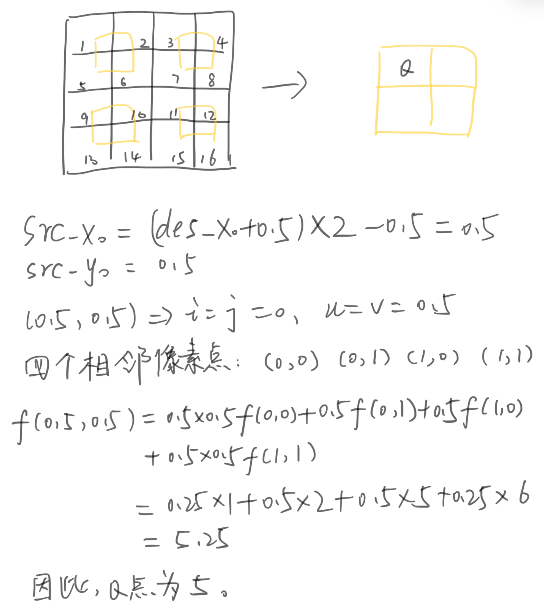 1 2 3 4
5 6 7 8
9 10 11 12
13 14 15 16
Q
src-x₀ = (des-x₀+0.5)×2-0.5=0.5
src-y₀ = 0.5
(0.5, 0.5) => i=j=0, u=v=0.5
四个相邻像素点: (0,0) (0,1) (1,0) (1,1)
f(0.5,0.5)=0.5×0.5f(0,0)+0.5f(0,1)+0.5f(1,0)
+0.5×0.5f(1,1)
=0.25×1+0.5×2+0.5×5+0.25×6
=5.25
因此, Q点为5。